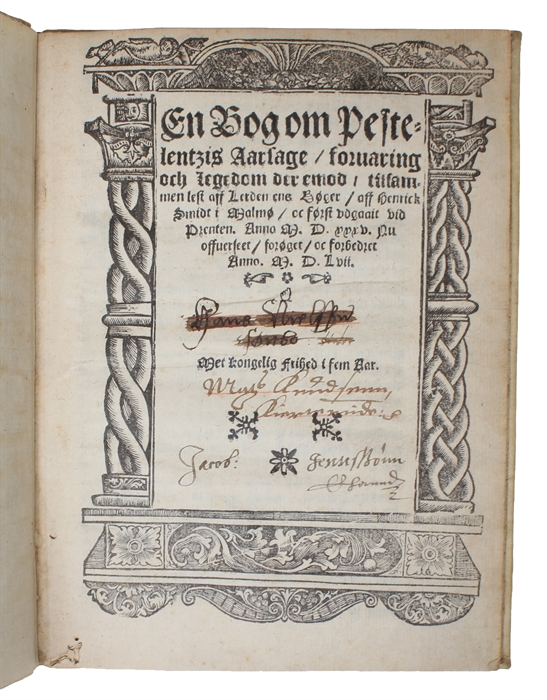 En Bog om Peste-
lentzis Aarsage / foruaring
och Legedom der emod / tilsam-
men lest aff Lerden ens Bøger / aff Henrick
Smidt i Malmø / oc først vdgaait vid
Prenten. Anno M. D. xxxv. Nu
offuerseet / forøget / oc forbedret
Anno. M. D. Lvii.
Hans
Met kongelig Frihed i fem Aar.
Knudsenn,
Jacob: